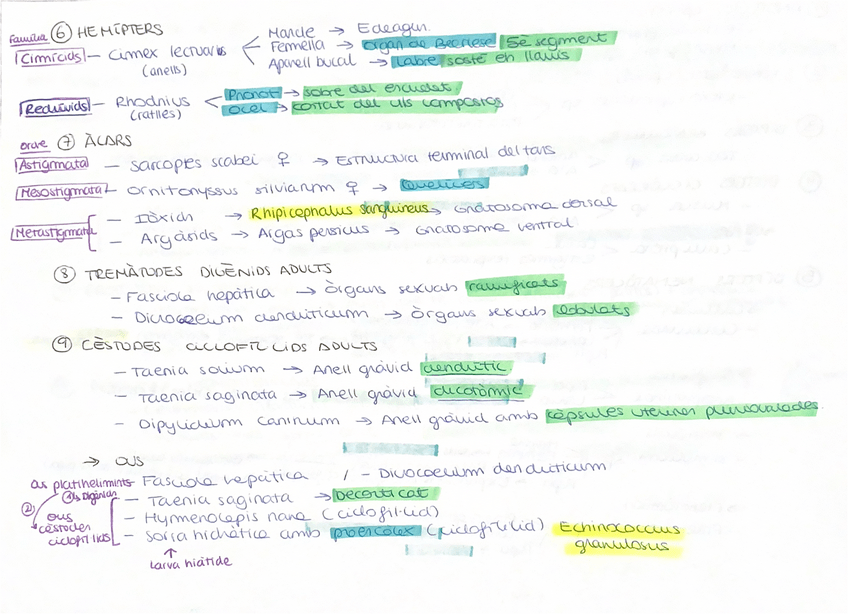 Família ⑥ HEMÍPTERS
Mascle → Edeagun
Cimícids — Cimex lectularis Femella → òrgan de Berlese 5è segment
(anells) Aparell bucal → Labre sosté en llavis
Reduvids — Rhodnius Pronot → sobre del escudet.
(ratlles) Ocel → costat del ulls compostos
ordre ⑦ ÀCARS
Astigmata — Sarcoptes scabei ♀ → Estructura terminal del tars
Mesostigmata — Ornitonyssus silviarum ♀ → Quelícers
Metastigmata — Ixòxids → Rhipicephalus sanguineus → Gnatosoma dorsal
— Argàsids → Argas persicus → Gnatosoma ventral
⑧ TREMÀTODES DIGÈNIDS ADULTS
— Fasciola hepàtica → Òrgans sexuals ramificats
— Dicrocoelium dendriticum → Òrgans sexuals lobulats
⑨ CÈSTODES CICLOFIL·LIDS ADULTS
— Taenia solium → Anell gràvid dendrític.
— Taenia saginata → Anell gràvid dicotòmic
— Dipylidium caninum → Anell gràvid amb càpsules uterines pluriovulades
→ OUS
Ous platihelmints — Fasciola hepàtica / — Dicrocoelium dendriticum
① Ous digènids — Taenia saginata → Decorticat
② ous cèstodes ciclofil·lids — Hymenolepis nana (ciclofil·lid)
— Sorra hidràtica amb proescòlex (ciclofil·lid) Echinococcus granulosus
↑
Larva hidàtide